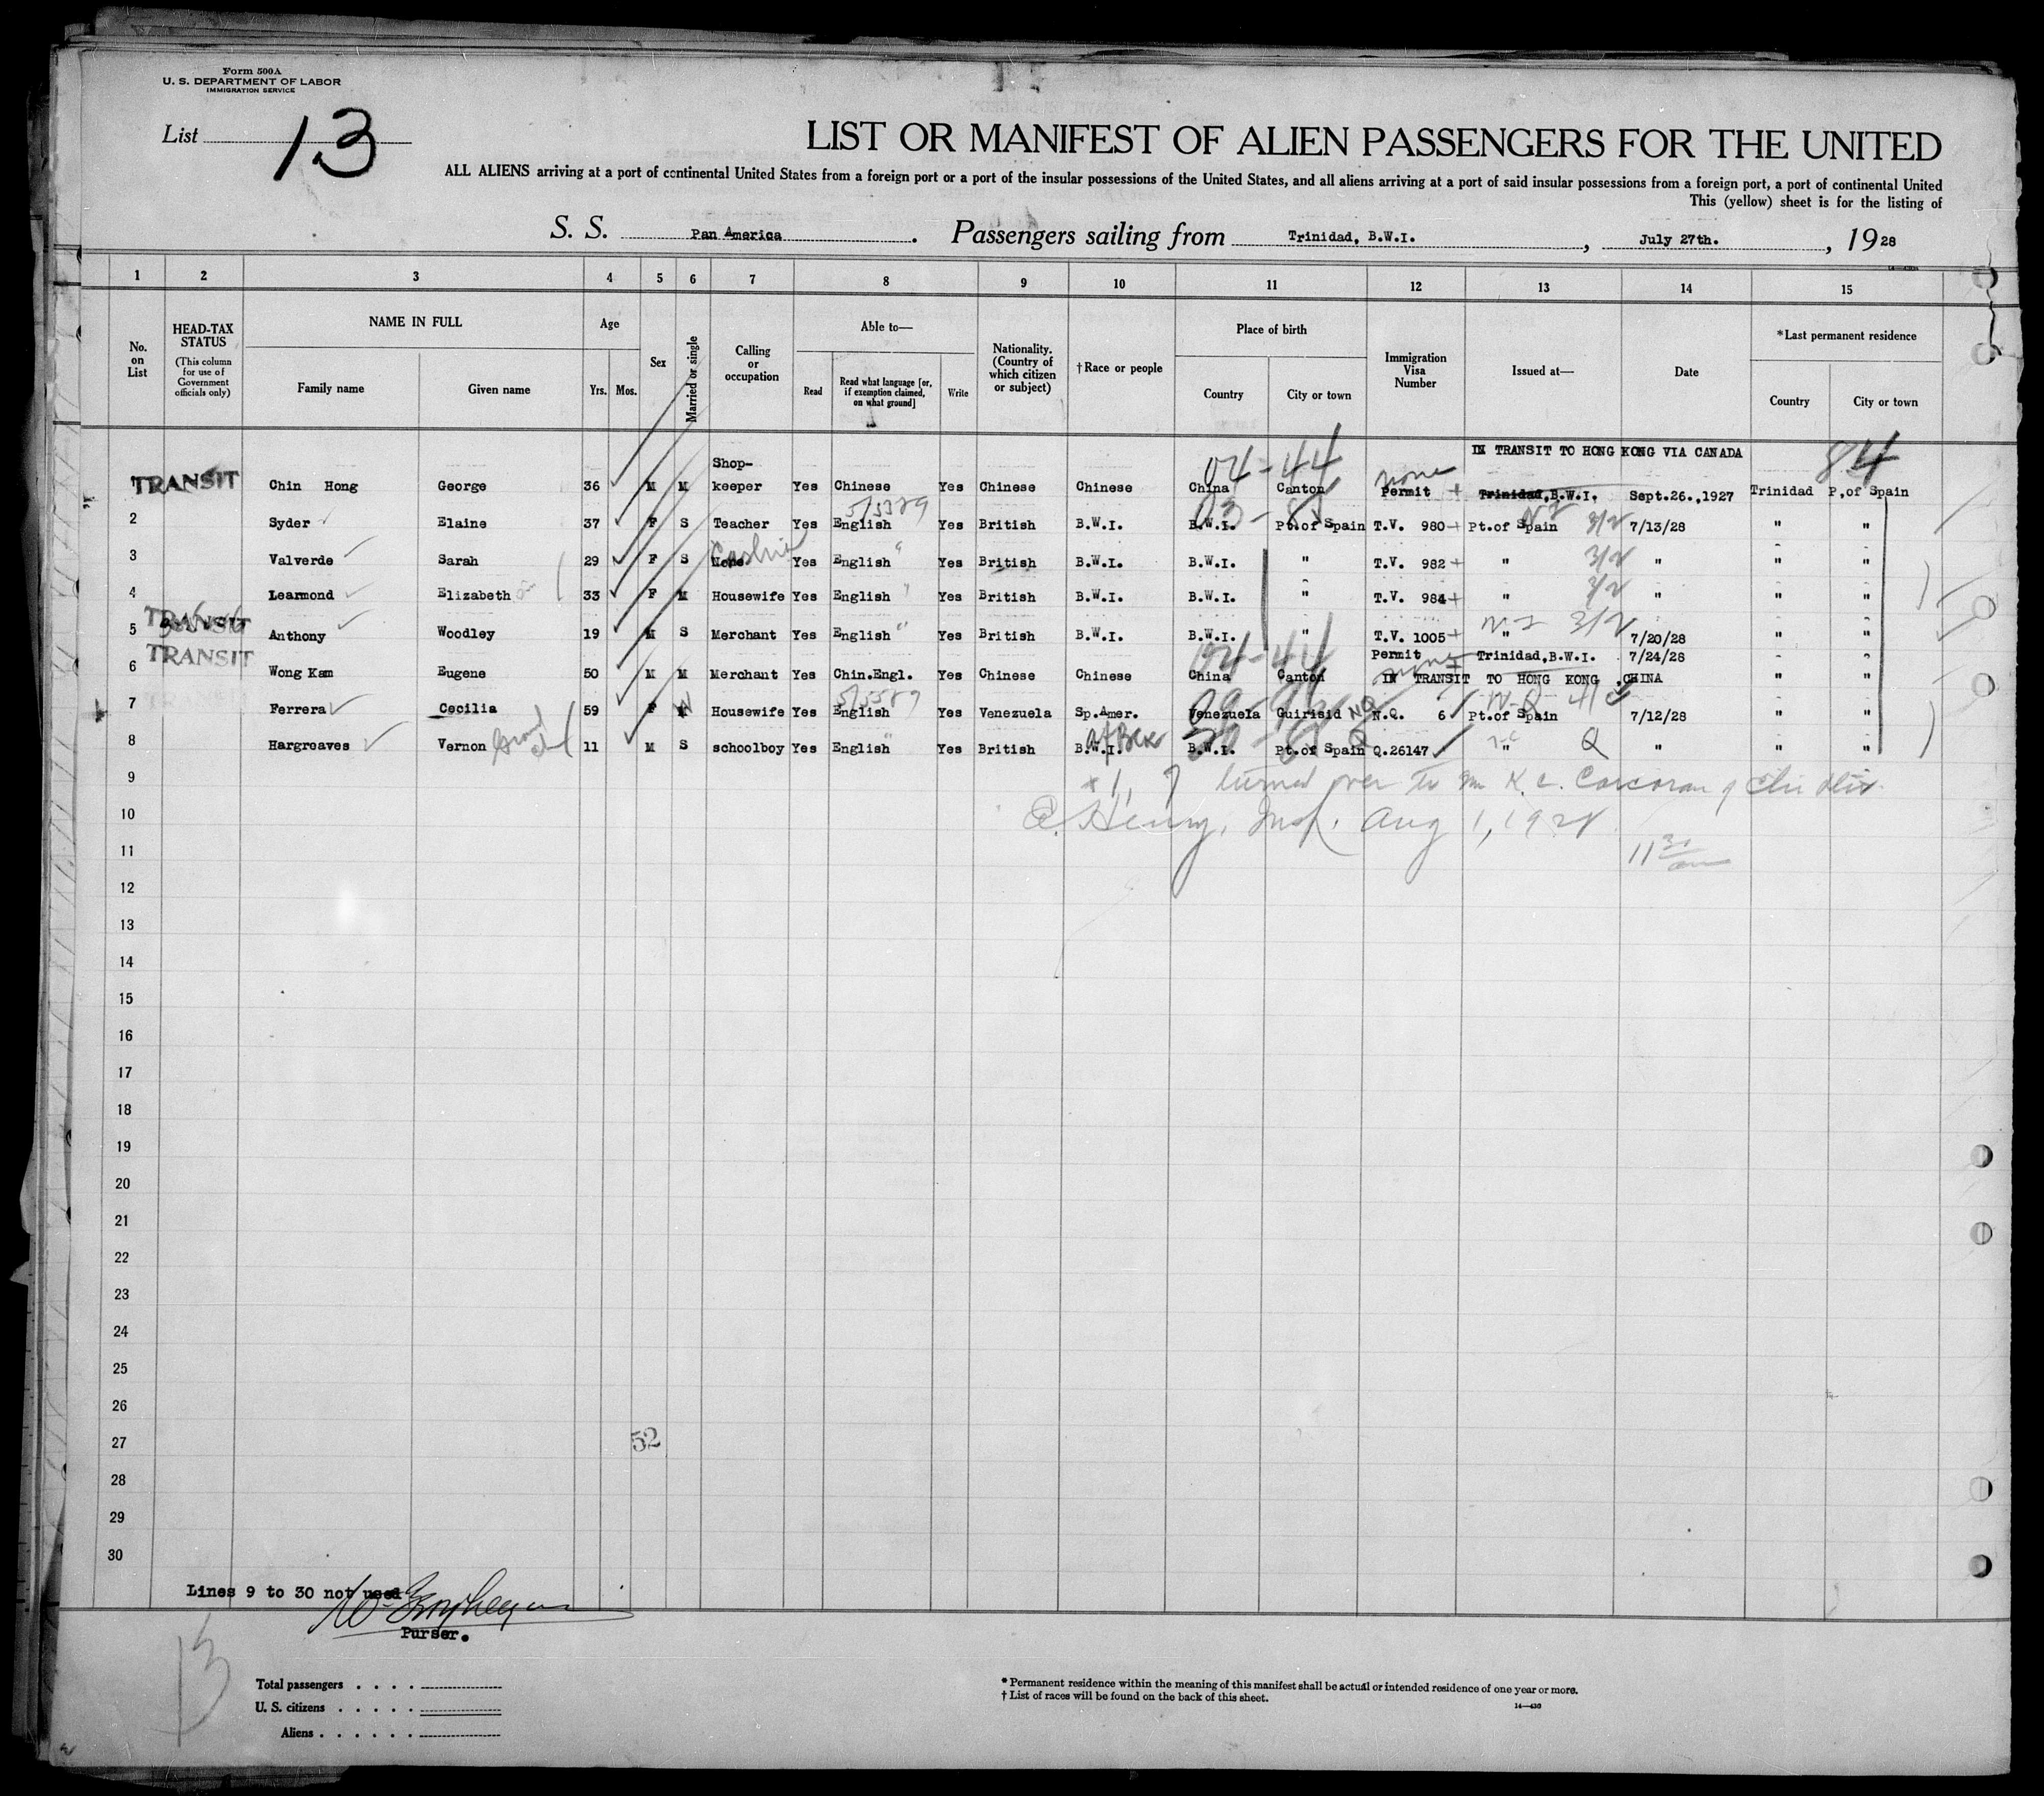 Form 500A
U. S. DEPARTMENT OF LABOR
IMMIGRATION SERVICE
List 13
LIST OR MANIFEST OF ALIEN PASSENGERS FOR THE UNITED
ALL ALIENS arriving at a port of continental United States from a foreign port or a port of the insular possessions of the United States, and all aliens arriving at a port of said insular possessions from a foreign port, a port of continental United
This (yellow) sheet is for the listing of
S. S. Pan America. Passengers sailing from Trinidad, B.W.I., July 27th., 1928
1 2 3 4 5 6 7 8 9 10 11 12 13 14 15
No. on List HEAD-TAX STATUS (This column for use of Government officials only) NAME IN FULL Family name Given name Age Yrs. Mos. Sex Married or single Calling or occupation Able to— Read Read what language [or, if exemption claimed, on what ground] Write Nationality. (Country of which citizen or subject) †Race or people Place of birth Country City or town Immigration Visa Number Issued at— Date *Last permanent residence Country City or town
IN TRANSIT TO HONG KONG VIA CANADA 84
04-44 none
TRANSIT Chin Hong George 36 M M Shop-keeper Yes Chinese Yes Chinese Chinese China Canton Permit Trinidad, B.W.I. Sept.26.,1927 Trinidad P.of Spain
2 Syder Elaine 37 F S Teacher Yes English Yes British B.W.I. B.W.I. Pt.of Spain T.V. 980 Pt.of Spain 3/2 7/13/28 " "
3 Valverde Sarah 29 F S None Cashier Yes English " Yes British B.W.I. B.W.I. " T.V. 982 " 3/2 " " "
4 Learmond Elizabeth 33 F M Housewife Yes English " Yes British B.W.I. B.W.I. " T.V. 984 " 3/2 " " "
TRANSIT
5 Anthony Woodley 19 M S Merchant Yes English " Yes British B.W.I. B.W.I. " T.V. 1005 " 3/2 7/20/28 " "
TRANSIT 04-44 Permit none Trinidad, B.W.I. 7/24/28
6 Wong Kam Eugene 50 M M Merchant Yes Chin.Engl. Yes Chinese Chinese China Canton IN TRANSIT TO HONG KONG, CHINA " "
7 Ferrera Cecilia 59 F M Housewife Yes English Yes Venezuela Sp.Amer. Venezuela Guirisid N.Q. 6 Pt.of Spain 7/12/28 " "
8 Hargreaves Vernon 11 M S schoolboy Yes English " Yes British B.W.I. B.W.I. Pt.of Spain Q.26147 " Q " " "
9 turned over to Mr K. C. Corcoran of
10 Henry, Insp. Aug 1, 1928
11 11 30 am
12
13
14
15
16
17
18
19
20
21
22
23
24
25
26
27 52
28
29
30
Lines 9 to 30 not used
Purser.
13
Total passengers
U. S. citizens
Aliens
* Permanent residence within the meaning of this manifest shall be actual or intended residence of one year or more.
† List of races will be found on the back of this sheet.
14—430